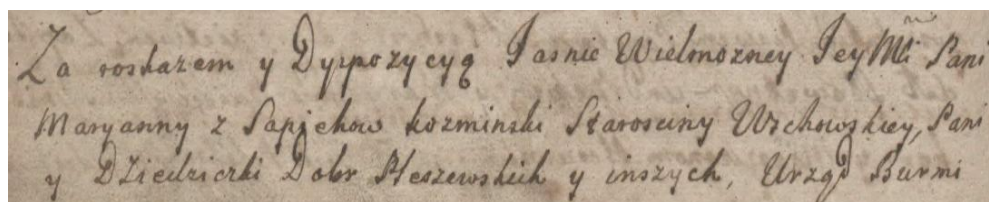 Za roskazem y Dyspozycyą Jasnie Wielmozney Jey Mći Pani
Maryanny z Sapiehow Kozminski Starosciny Wschowskiey, Pani
y Dziedziczki Dobr Pleszewskich y inszych, Urząd Burmi